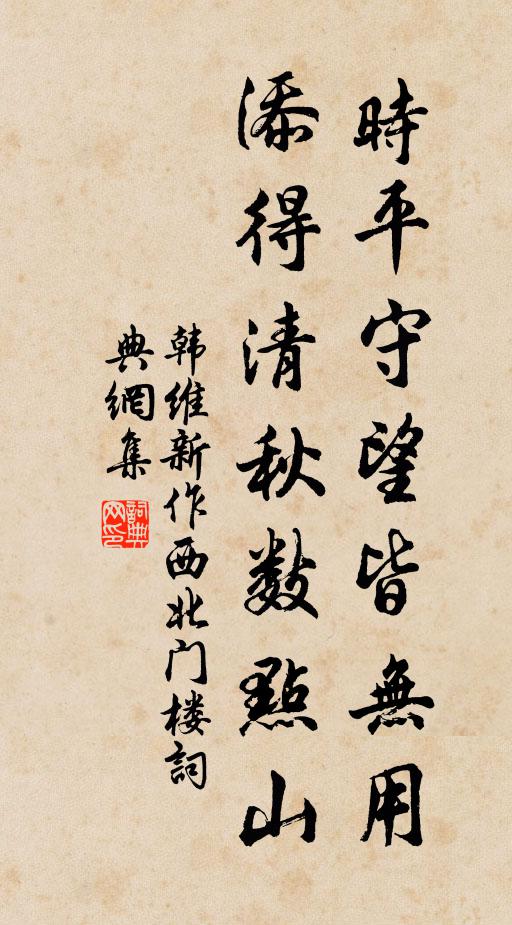 時平守望皆無用
添得清秋数點山
韩維新作西北门楼詞
典網集
詞典
网印